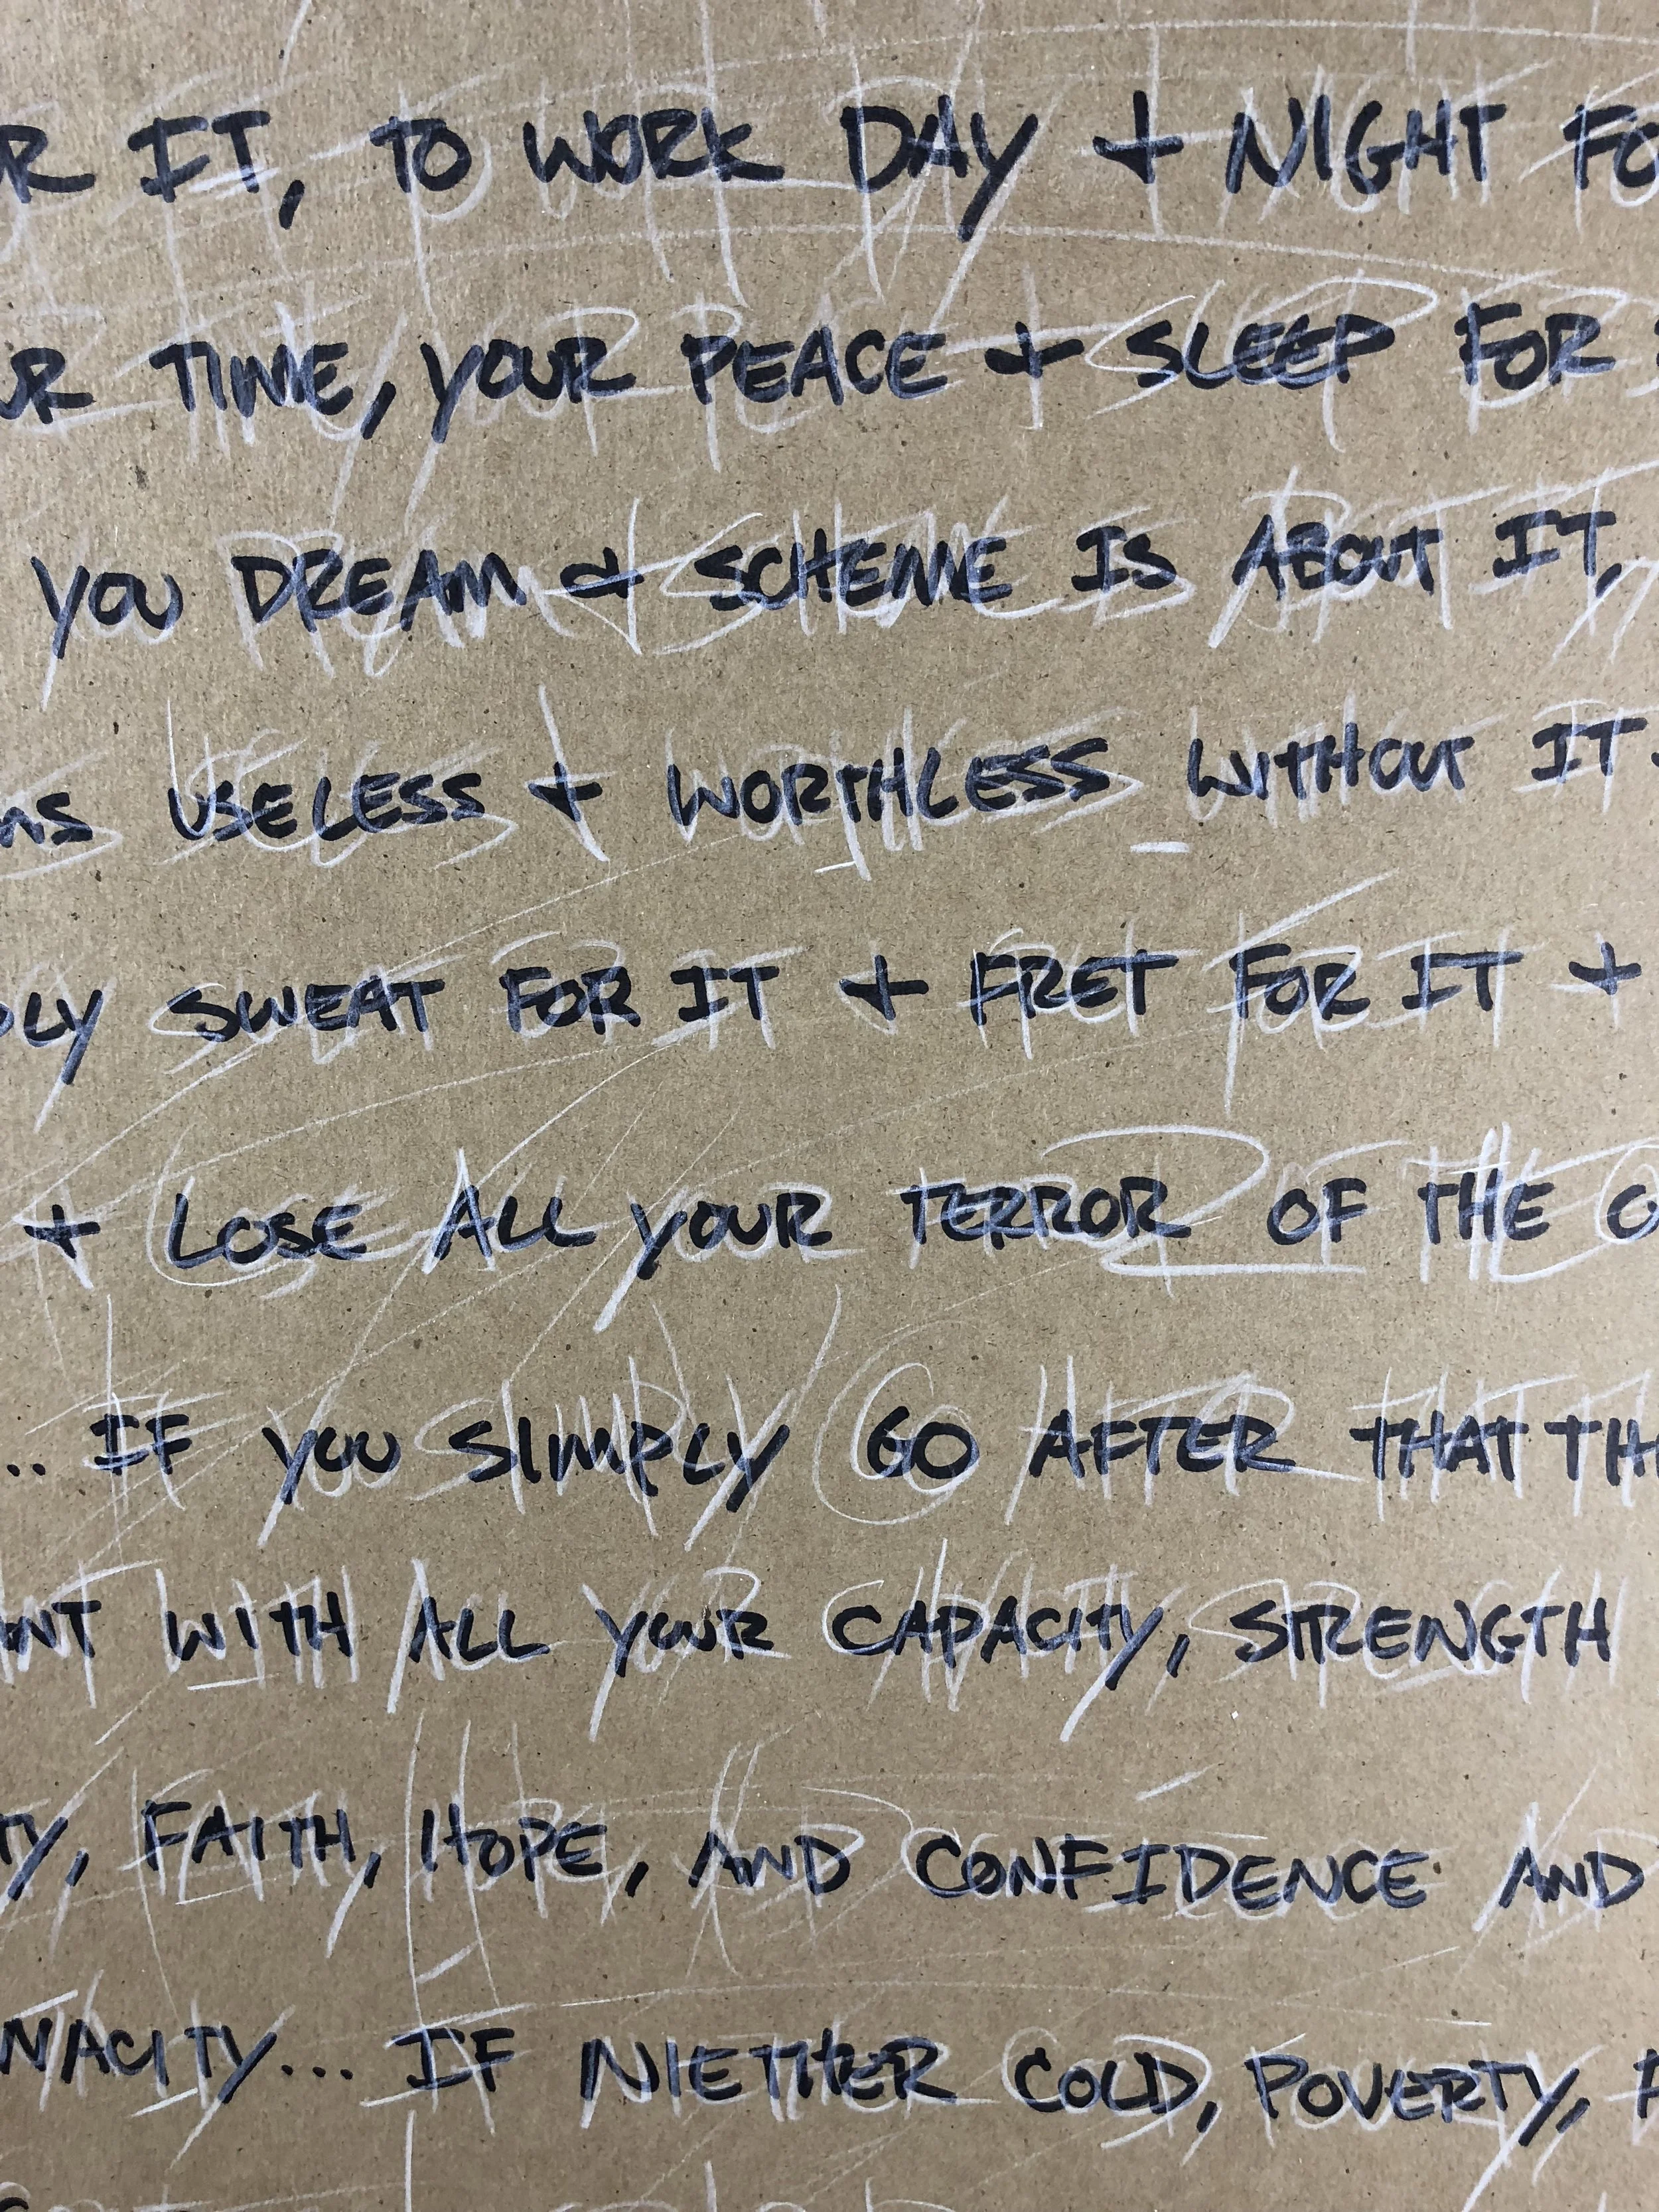 R IT, TO WORK DAY + NIGHT FO
UR TIME, YOUR PEACE + SLEEP FOR
YOU DREAM & SCHEME IS ABOUT IT,
MS USELESS + WORTHLESS WITHOUT IT.
PLY SWEAT FOR IT + FRET FOR IT +
+ LOSE ALL YOUR TERROR OF THE O
.. IF YOU SIMPLY GO AFTER THAT TH
ANT WITH ALL YOUR CAPACITY, STRENGTH
TY, FAITH, HOPE, AND CONFIDENCE AND
NACITY... IF NIETHER COLD, POVERTY, F